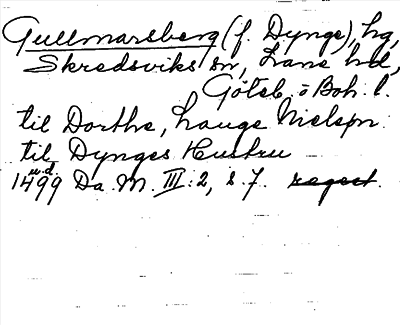 Gullmarsberg (f. Dynge), hg,
Skredsviks sn, Lane hd,
Göteb. o Boh. l.
til Dorthe, Lauge Nielsøn
til Dynges Hustru
u.d.
1499 Da. M. III: 2, s 7. regest.